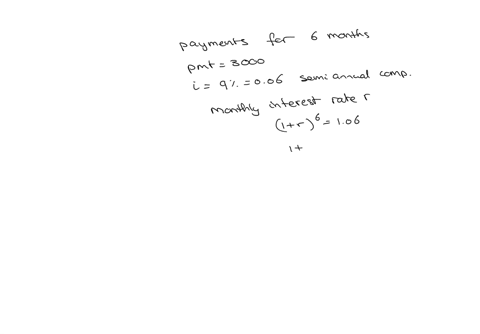 payments for 6 months
pmt = 3000
i = 9% = 0.06 semiannual comp.
monthly interest rate r
(1+r)^6 = 1.06
1+